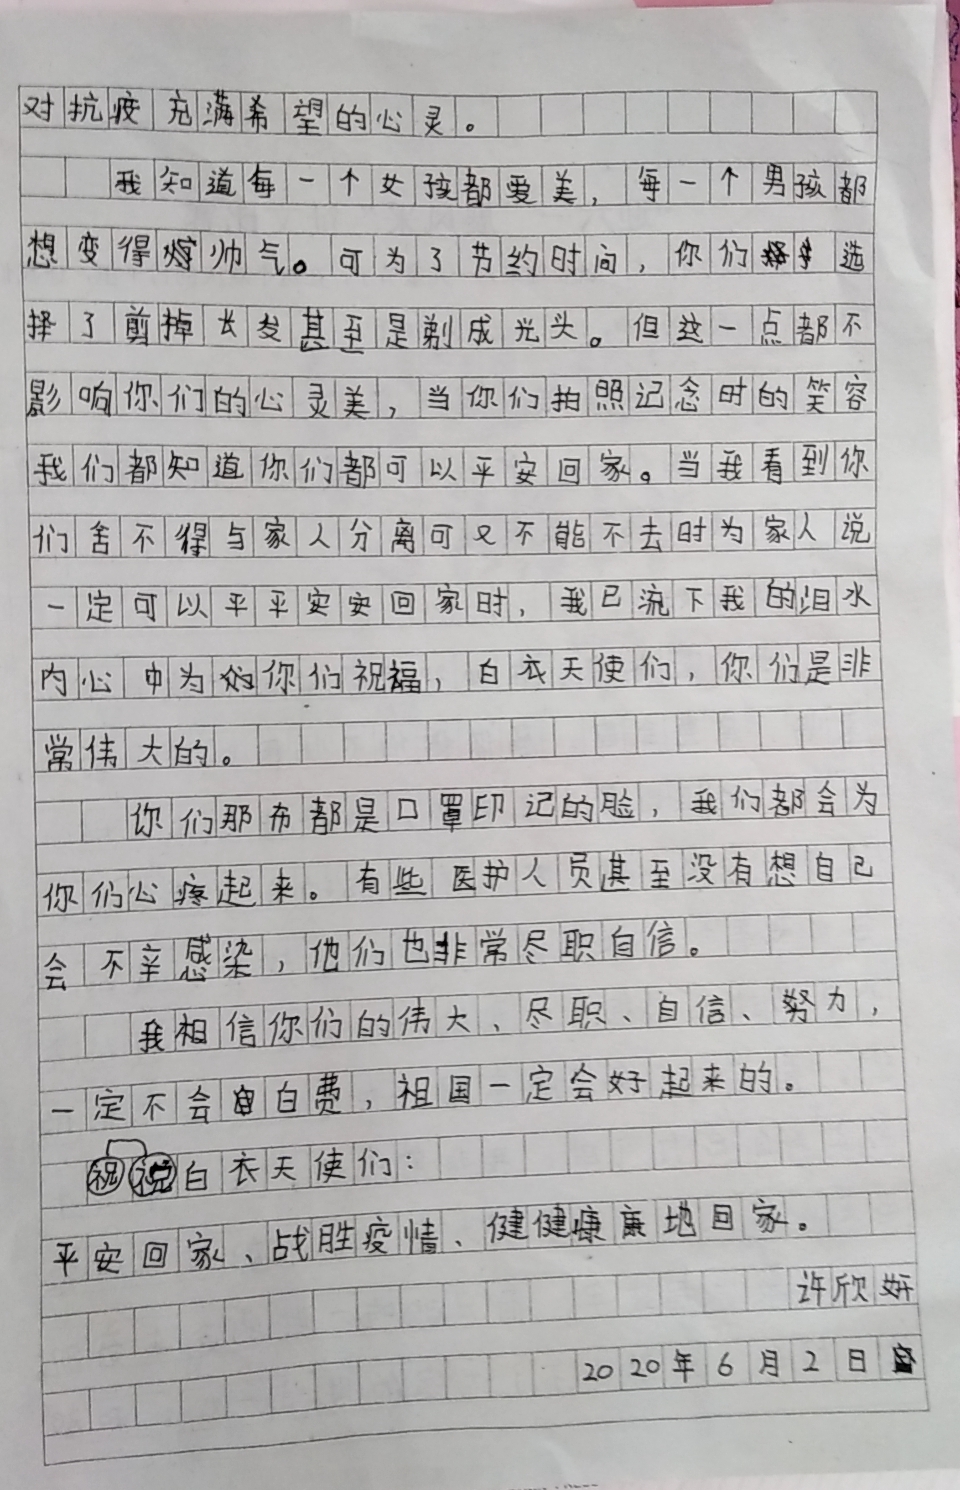 对抗疫充满希望的心灵。
我知道每一个女孩都爱美，每一个男孩都
想变得帅气。可为了节约时间，你们选
择了剪掉长发甚至是剃成光头。但这一点都不
影响你们的心灵美，当你们拍照记念时的笑容
我们都知道你们都可以平安回家。当我看到你
们舍不得与家人分离可又不能不去时为家人说
一定可以平平安安回家时，我已流下我的泪水
内心中为你们祝福，白衣天使们，你们是非
常伟大的。
你们那布都是口罩印记的脸，我们都会为
你们心疼起来。有些医护人员甚至没有想自己
会不辛感染，他们也非常尽职自信。
我相信你们的伟大、尽职、自信、努力，
一定不会白费，祖国一定会好起来的。
祝白衣天使们：
平安回家、战胜疫情、健健康康地回家。
许欣妍
2020年6月2日